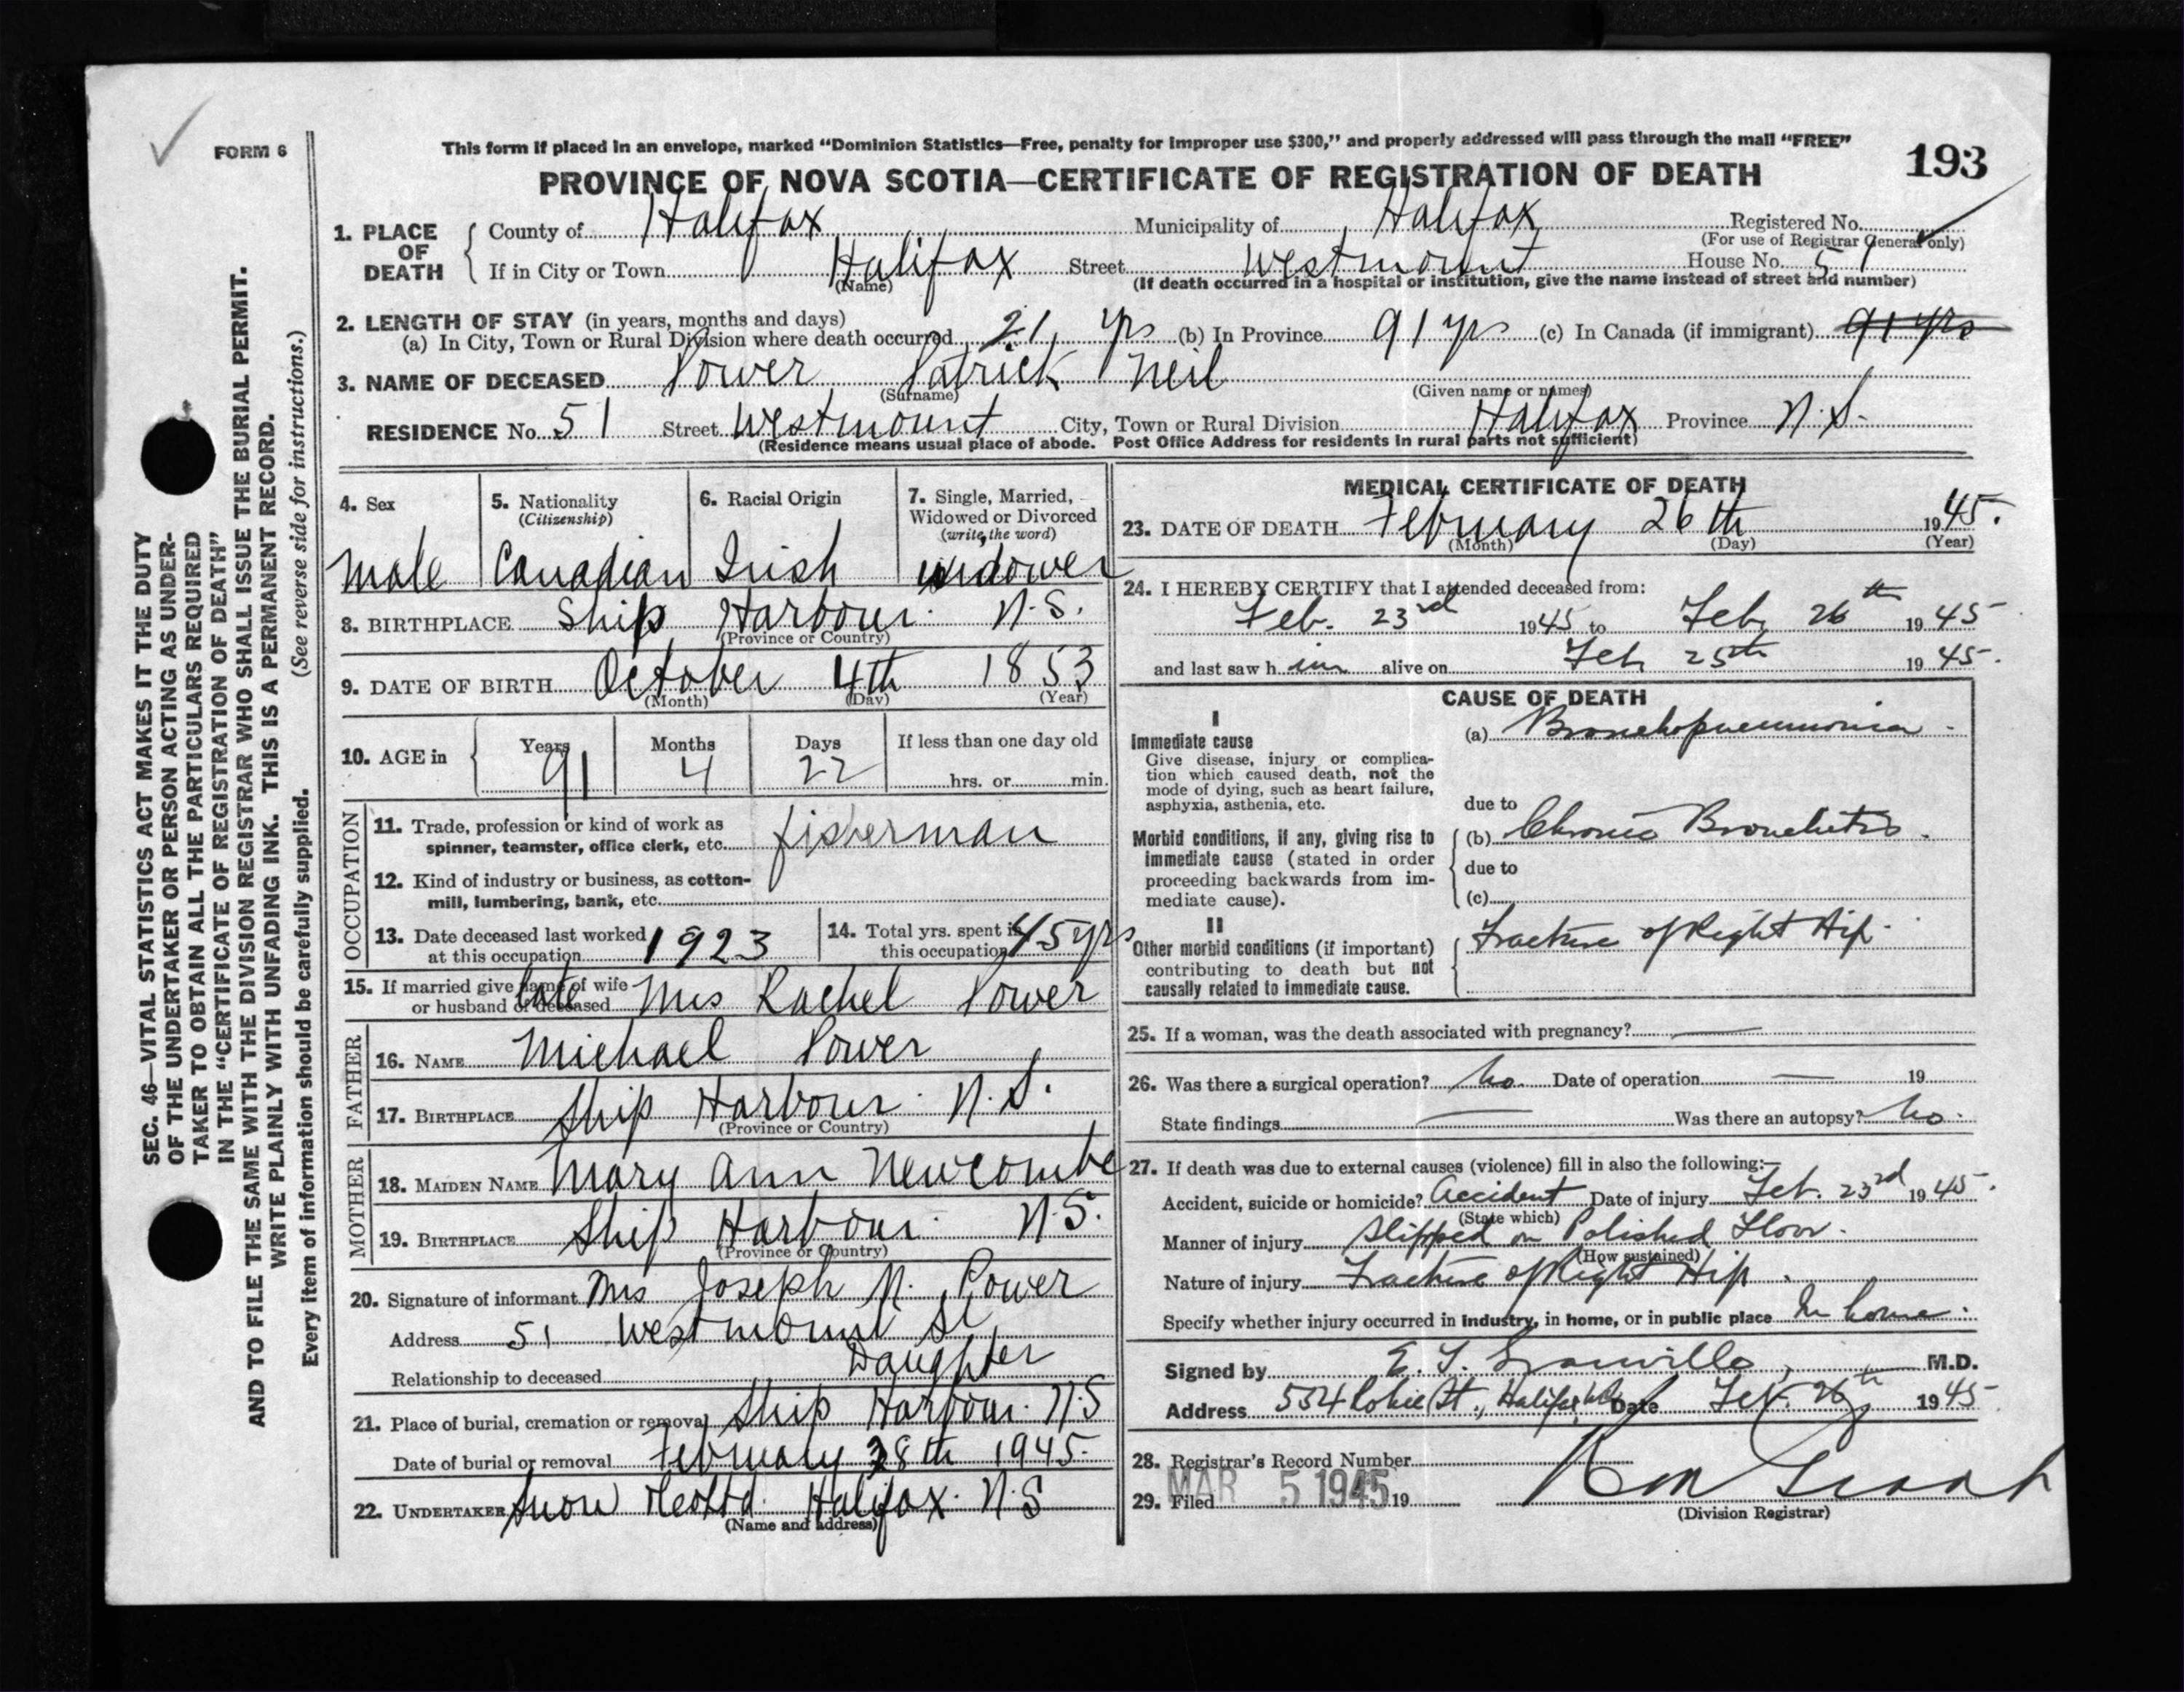 FORM 6
This form if placed in an envelope, marked “Dominion Statistics—Free, penalty for improper use $300,” and properly addressed will pass through the mail “FREE”
193
PROVINCE OF NOVA SCOTIA—CERTIFICATE OF REGISTRATION OF DEATH
1. PLACE OF DEATH
County of Halifax Municipality of Halifax Registered No.
(For use of Registrar General only)
If in City or Town Halifax Street Westmount House No. 51
(Name) (If death occurred in a hospital or institution, give the name instead of street and number)
2. LENGTH OF STAY (in years, months and days)
(a) In City, Town or Rural Division where death occurred 21 yrs (b) In Province 91 yrs (c) In Canada (if immigrant) 91 yrs
3. NAME OF DECEASED Power Patrick Neil
(Surname) (Given name or names)
RESIDENCE No. 51 Street Westmount City, Town or Rural Division Halifax Province N.S.
(Residence means usual place of abode. Post Office Address for residents in rural parts not sufficient)
4. Sex
male
5. Nationality
(Citizenship)
Canadian
6. Racial Origin
Irish
7. Single, Married,
Widowed or Divorced
(write the word)
widower
8. BIRTHPLACE Ship Harbour N.S.
(Province or Country)
9. DATE OF BIRTH October 4th 1853
(Month) (Day) (Year)
10. AGE in
Years 91
Months 4
Days 22
If less than one day old
hrs. or min.
OCCUPATION
11. Trade, profession or kind of work as
spinner, teamster, office clerk, etc. fisherman
12. Kind of industry or business, as cotton-
mill, lumbering, bank, etc.
13. Date deceased last worked
at this occupation 1923
14. Total yrs. spent in
this occupation 45 yrs
15. If married give name of wife
or husband of deceased late Mrs Rachel Power
FATHER
16. NAME Michael Power
17. BIRTHPLACE Ship Harbour N.S.
(Province or Country)
MOTHER
18. MAIDEN NAME Mary Ann Newcombe
19. BIRTHPLACE Ship Harbour N.S.
(Province or Country)
20. Signature of informant Mrs Joseph N. Power
Address 51 Westmount St
Relationship to deceased Daughter
21. Place of burial, cremation or removal Ship Harbour N.S
Date of burial or removal February 28th 1945
22. UNDERTAKER Snow Halifax N.S
(Name and address)
MEDICAL CERTIFICATE OF DEATH
23. DATE OF DEATH February 26th 1945.
(Month) (Day) (Year)
24. I HEREBY CERTIFY that I attended deceased from:
Feb. 23rd 1945 to Feb. 26th 1945
and last saw h im alive on Feb 25th 1945.
CAUSE OF DEATH
I
Immediate cause
Give disease, injury or complica-
tion which caused death, not the
mode of dying, such as heart failure,
asphyxia, asthenia, etc.
(a) Bronchopneumonia
due to
Morbid conditions, if any, giving rise to
immediate cause (stated in order
proceeding backwards from im-
mediate cause).
(b) Chronic Bronchitis.
due to
(c)
II
Other morbid conditions (if important)
contributing to death but not
causally related to immediate cause.
Fracture of Right Hip.
25. If a woman, was the death associated with pregnancy? —
26. Was there a surgical operation? No. Date of operation — 19
State findings — Was there an autopsy? No.
27. If death was due to external causes (violence) fill in also the following:—
Accident, suicide or homicide? Accident Date of injury Feb. 23rd 1945.
(State which)
Manner of injury Slipped on Polished Floor.
(How sustained)
Nature of injury Fracture of Right Hip.
Specify whether injury occurred in industry, in home, or in public place In home.
Signed by E. M.D.
Address 534 Robie St., Halifax Date Feb. 26th 1945
28. Registrar's Record Number
29. Filed MAR 5 1945 19
(Division Registrar)
SEC. 46—VITAL STATISTICS ACT MAKES IT THE DUTY
OF THE UNDERTAKER OR PERSON ACTING AS UNDER-
TAKER TO OBTAIN ALL THE PARTICULARS REQUIRED
IN THE “CERTIFICATE OF REGISTRATION OF DEATH”
AND TO FILE THE SAME WITH THE DIVISION REGISTRAR WHO SHALL ISSUE THE BURIAL PERMIT.
WRITE PLAINLY WITH UNFADING INK. THIS IS A PERMANENT RECORD.
Every item of information should be carefully supplied. (See reverse side for instructions.)